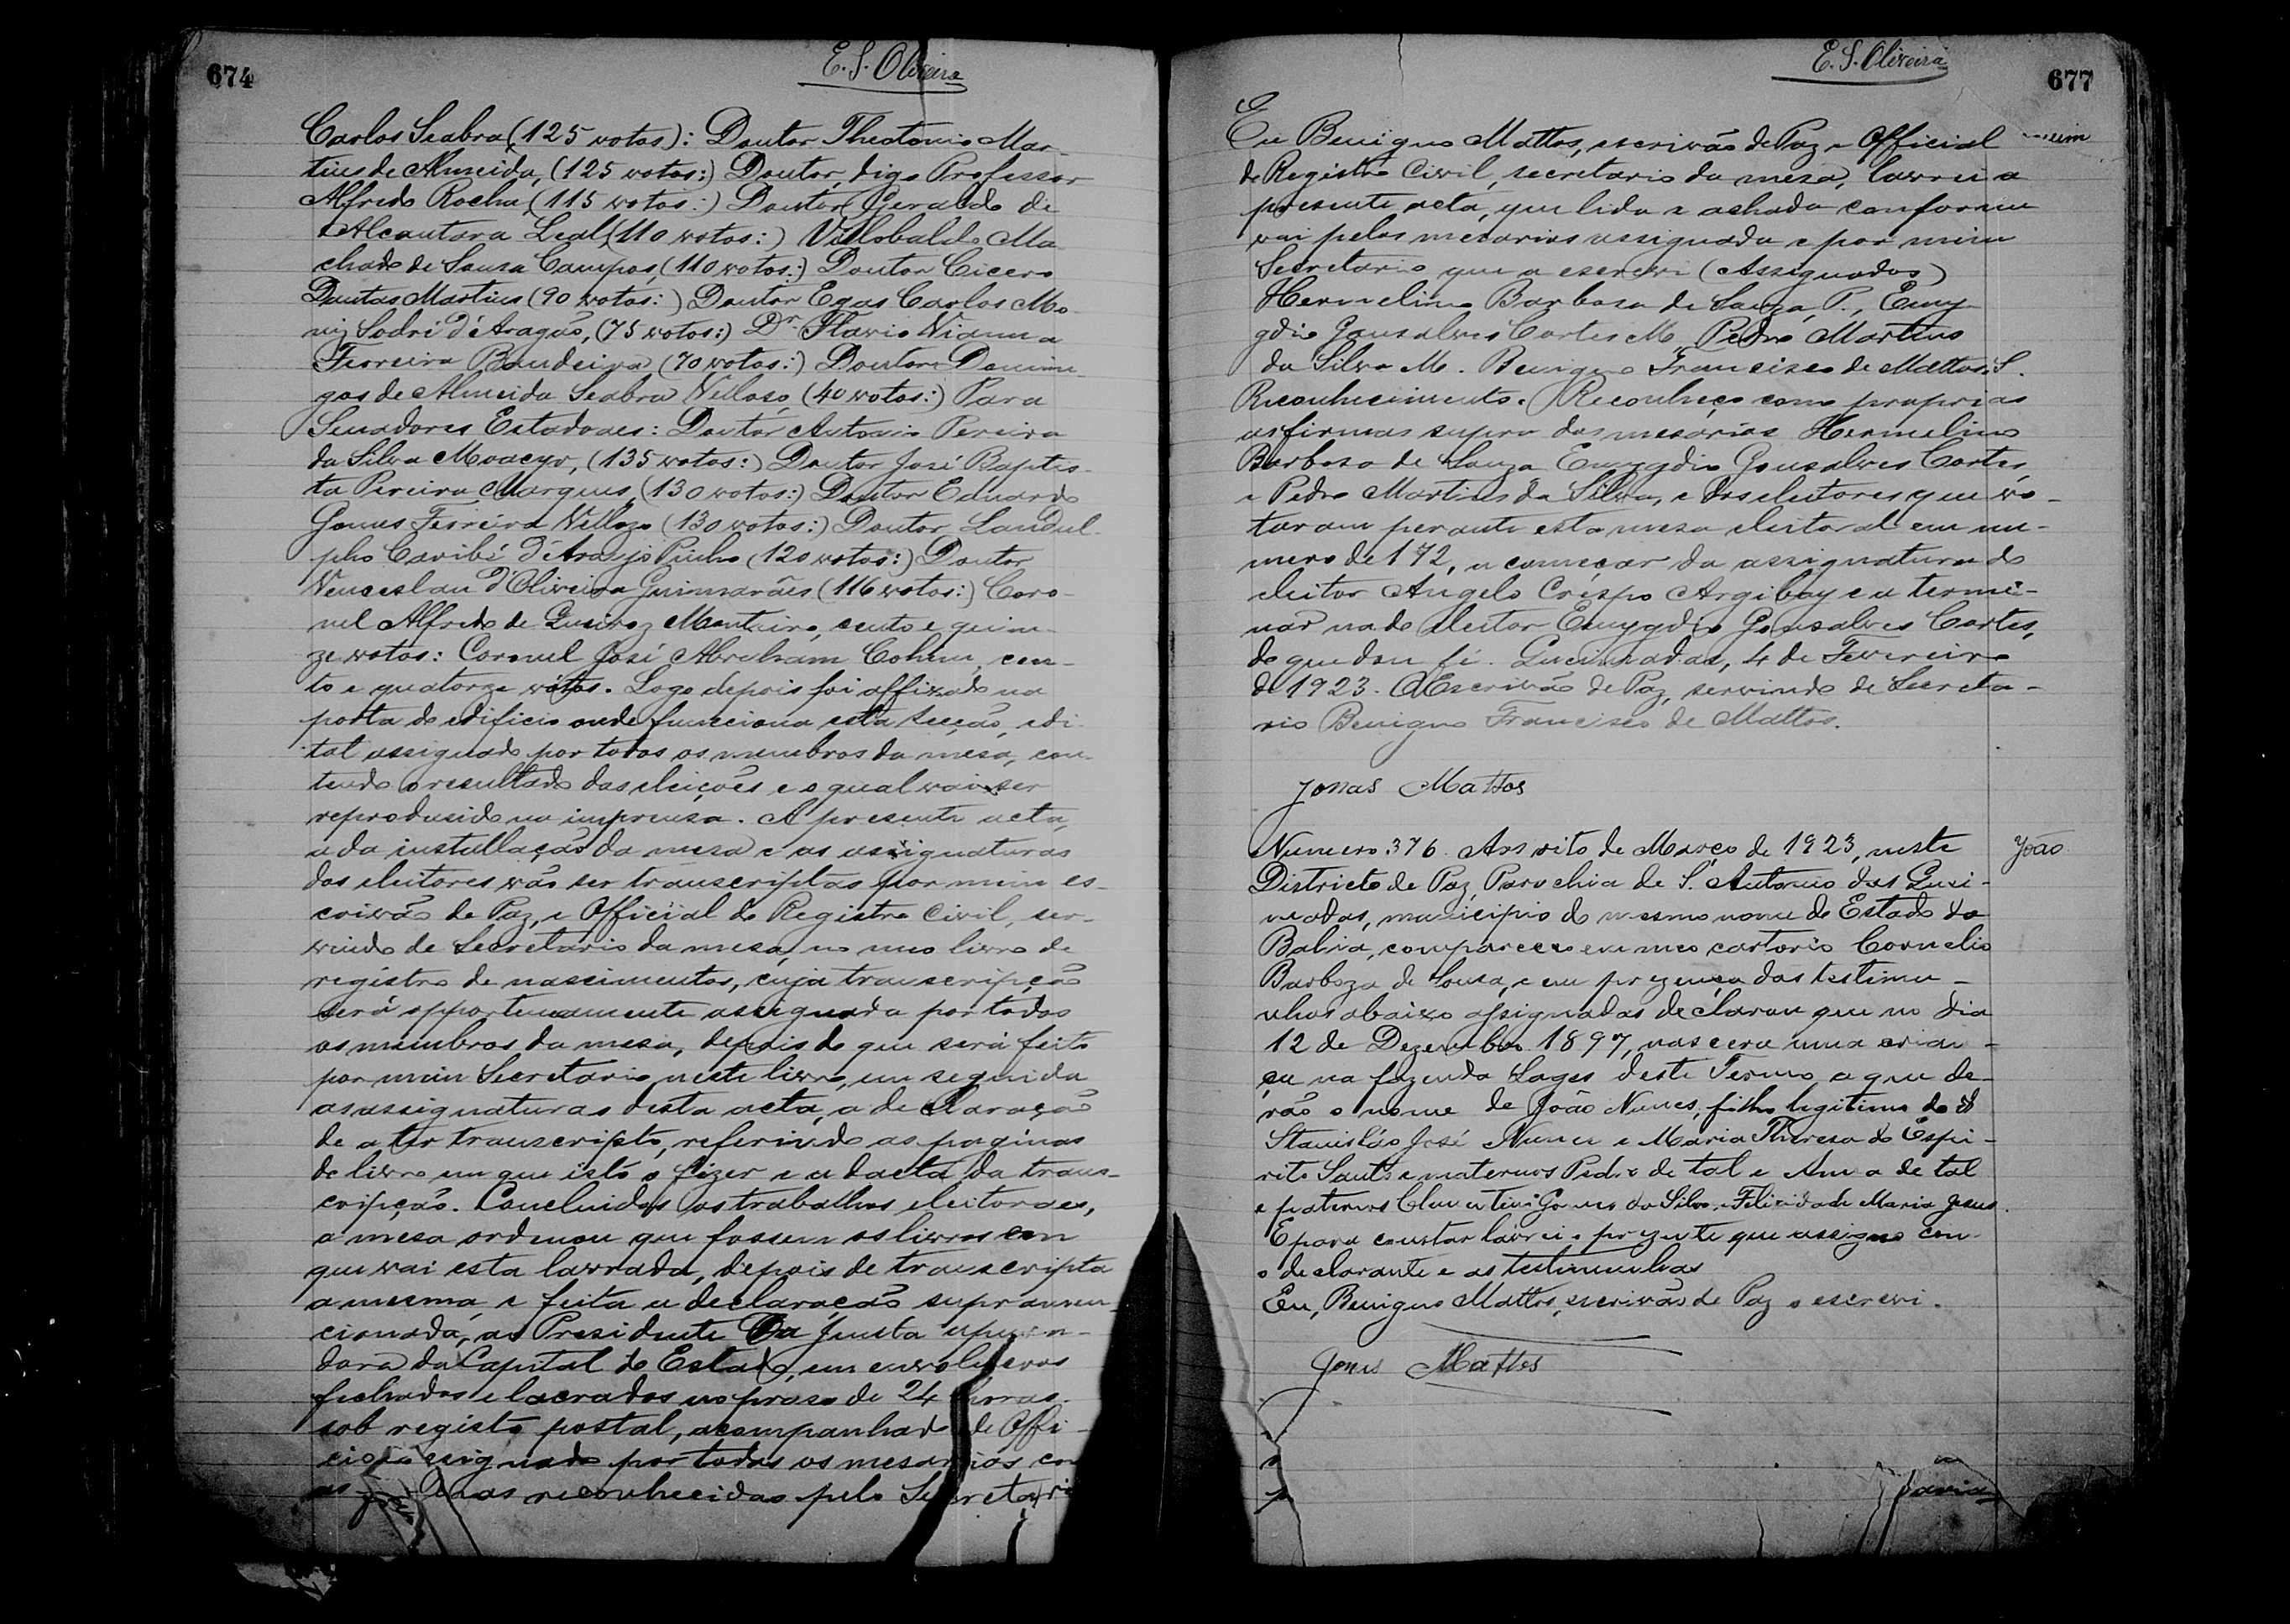 674
E. S. Oliveira
Carlos Seabra (125 votos): Doutor Theotonio Mar-
tins de Almeida, (125 votos:) Doutor, digo Professor
Alfredo Rocha (115 votos:) Doutor Geraldo de
Alcantara Leal (110 votos:) Villobaldo Ma
chado de Souza Campos, (110 votos:) Doutor Cicero
Dantas Martins (90 votos:) Doutor Egas Carlos Mo-
niz Sodré d'Aragão, (75 votos:) Dr. Flavio Vianna
Ferreira Bandeira (70 votos:) Doutor Domin-
gos de Almeida Seabra Velloso (40 votos:) Para
Senadores Estadoaes: Doutor Antonio Pereira
da Silva Moacyr, (135 votos:) Doutor José Baptis-
ta Pereira Marques, (130 votos:) Doutor Eduardo
Gomes Ferreira Vellozo (130 votos:) Doutor Landul-
pho Caribé d'Araujo Pinho (120 votos:) Doutor
Venceslau d'Oliveira Guimarães (116 votos:) Coro-
nel Alfredo de Queiroz Monteiro, cento e quin-
ze votos: Coronel José Abraham Cohim, cen-
to e quatorze votos. Logo depois foi affixado na
porta do edificio onde funcciona esta secção, edi-
tal assignado por todos os membros da mesa, con-
tendo o resultado das eleições e o qual vai ser
reprodusido na imprensa. A presente acta,
a da installação da mesa e as assignaturas
dos eleitores vão ser transcriptas por mim es-
crivão de Paz, e Official do Registro Civil, ser-
vindo de Secretario da mesa, no meu livro de
registro de nascimentos, cuja transcripção
será opportunamente assignada por todos
os membros da mesa, depois do que será feito
por mim Secretario neste livro, em seguida
as assignaturas desta acta, a declaração
de a ter transcripto, referindo as paginas
do livro em que isto o fizer e a dacta da trans-
cripção. Concluidos os trabalhos eleitoraes,
a mesa ordenou que fossem os livros em
que vai esta lavrada, depois de transcripta
a mesma e feita a declaração supramen-
cionada, ao Presidente da Junta apura-
dora da Capital do Estado, em envolucros
fechados e lacrados no praso de 24 horas
sob registo postal, acompanhado de Offi-
cio assignado por todos os mesarios com
as firmas reconhecidas pelo Secretario
E. S. Oliveira
677
Eu Benigno Mattos, escrivão de Paz e Official
do Registro Civil, secretario da mesa, lavrei a
presente acta, que lida e achada conforme
vai pelos mesarios assignada e por mim
Secretario que a escrevi (Assignados)
Hermelino Barbosa de Souza, P., Emy-
gdio Gonsalves Cortes M. Pedro Martins
da Silva M. Benigno Francisco de Mattos, S.
Reconhecimento. Reconheço como proprias
as firmas supra dos mesarios Hermelino
Barbosa de Souza Emygdio Gonsalves Cortes
e Pedro Martins da Silva, e dos eleitores que vo-
taram perante esta mesa eleitoral em nu-
mero de 172, a começar da assignatura do
eleitor Angelo Crespo Argibay e a termi-
nar na do eleitor Emygdio Gonsalves Cortes,
do que dou fé. Queimadas, 4 de Fevereiro
de 1923. O Escrivão de Paz, servindo de Secreta-
rio Benigno Francisco de Mattos.
Jonas Mattos
João
Numero 376. Aos oito de Março de 1923, neste
Districto de Paz, Parochia de S. Antonio das Quei-
madas, municipio do mesmo nome do Estado da
Bahia, compareceu em meo cartorio Cornelio
Barboza de Sousa, e em prezença das testimu-
nhas abaixo assignadas declarou que no dia
12 de Dezembro 1897, nascera uma crian-
ça na fazenda Lages deste Termo, a que de-
rão o nome de João Nunes, filho legitimo de
Stanisláo José Nunes e Maria Thereza do Espi-
rito Santo e maternos Pedro de tal e Anna de tal
e paternos Clementino Gomes da Silva e Felicidade Maria Jesus.
E para constar lavrei o prezente que assigno com
o declarante e as testimunhas
Eu, Benigno Mattos, escrivão de Paz o escrevi.
Jonas Mattos